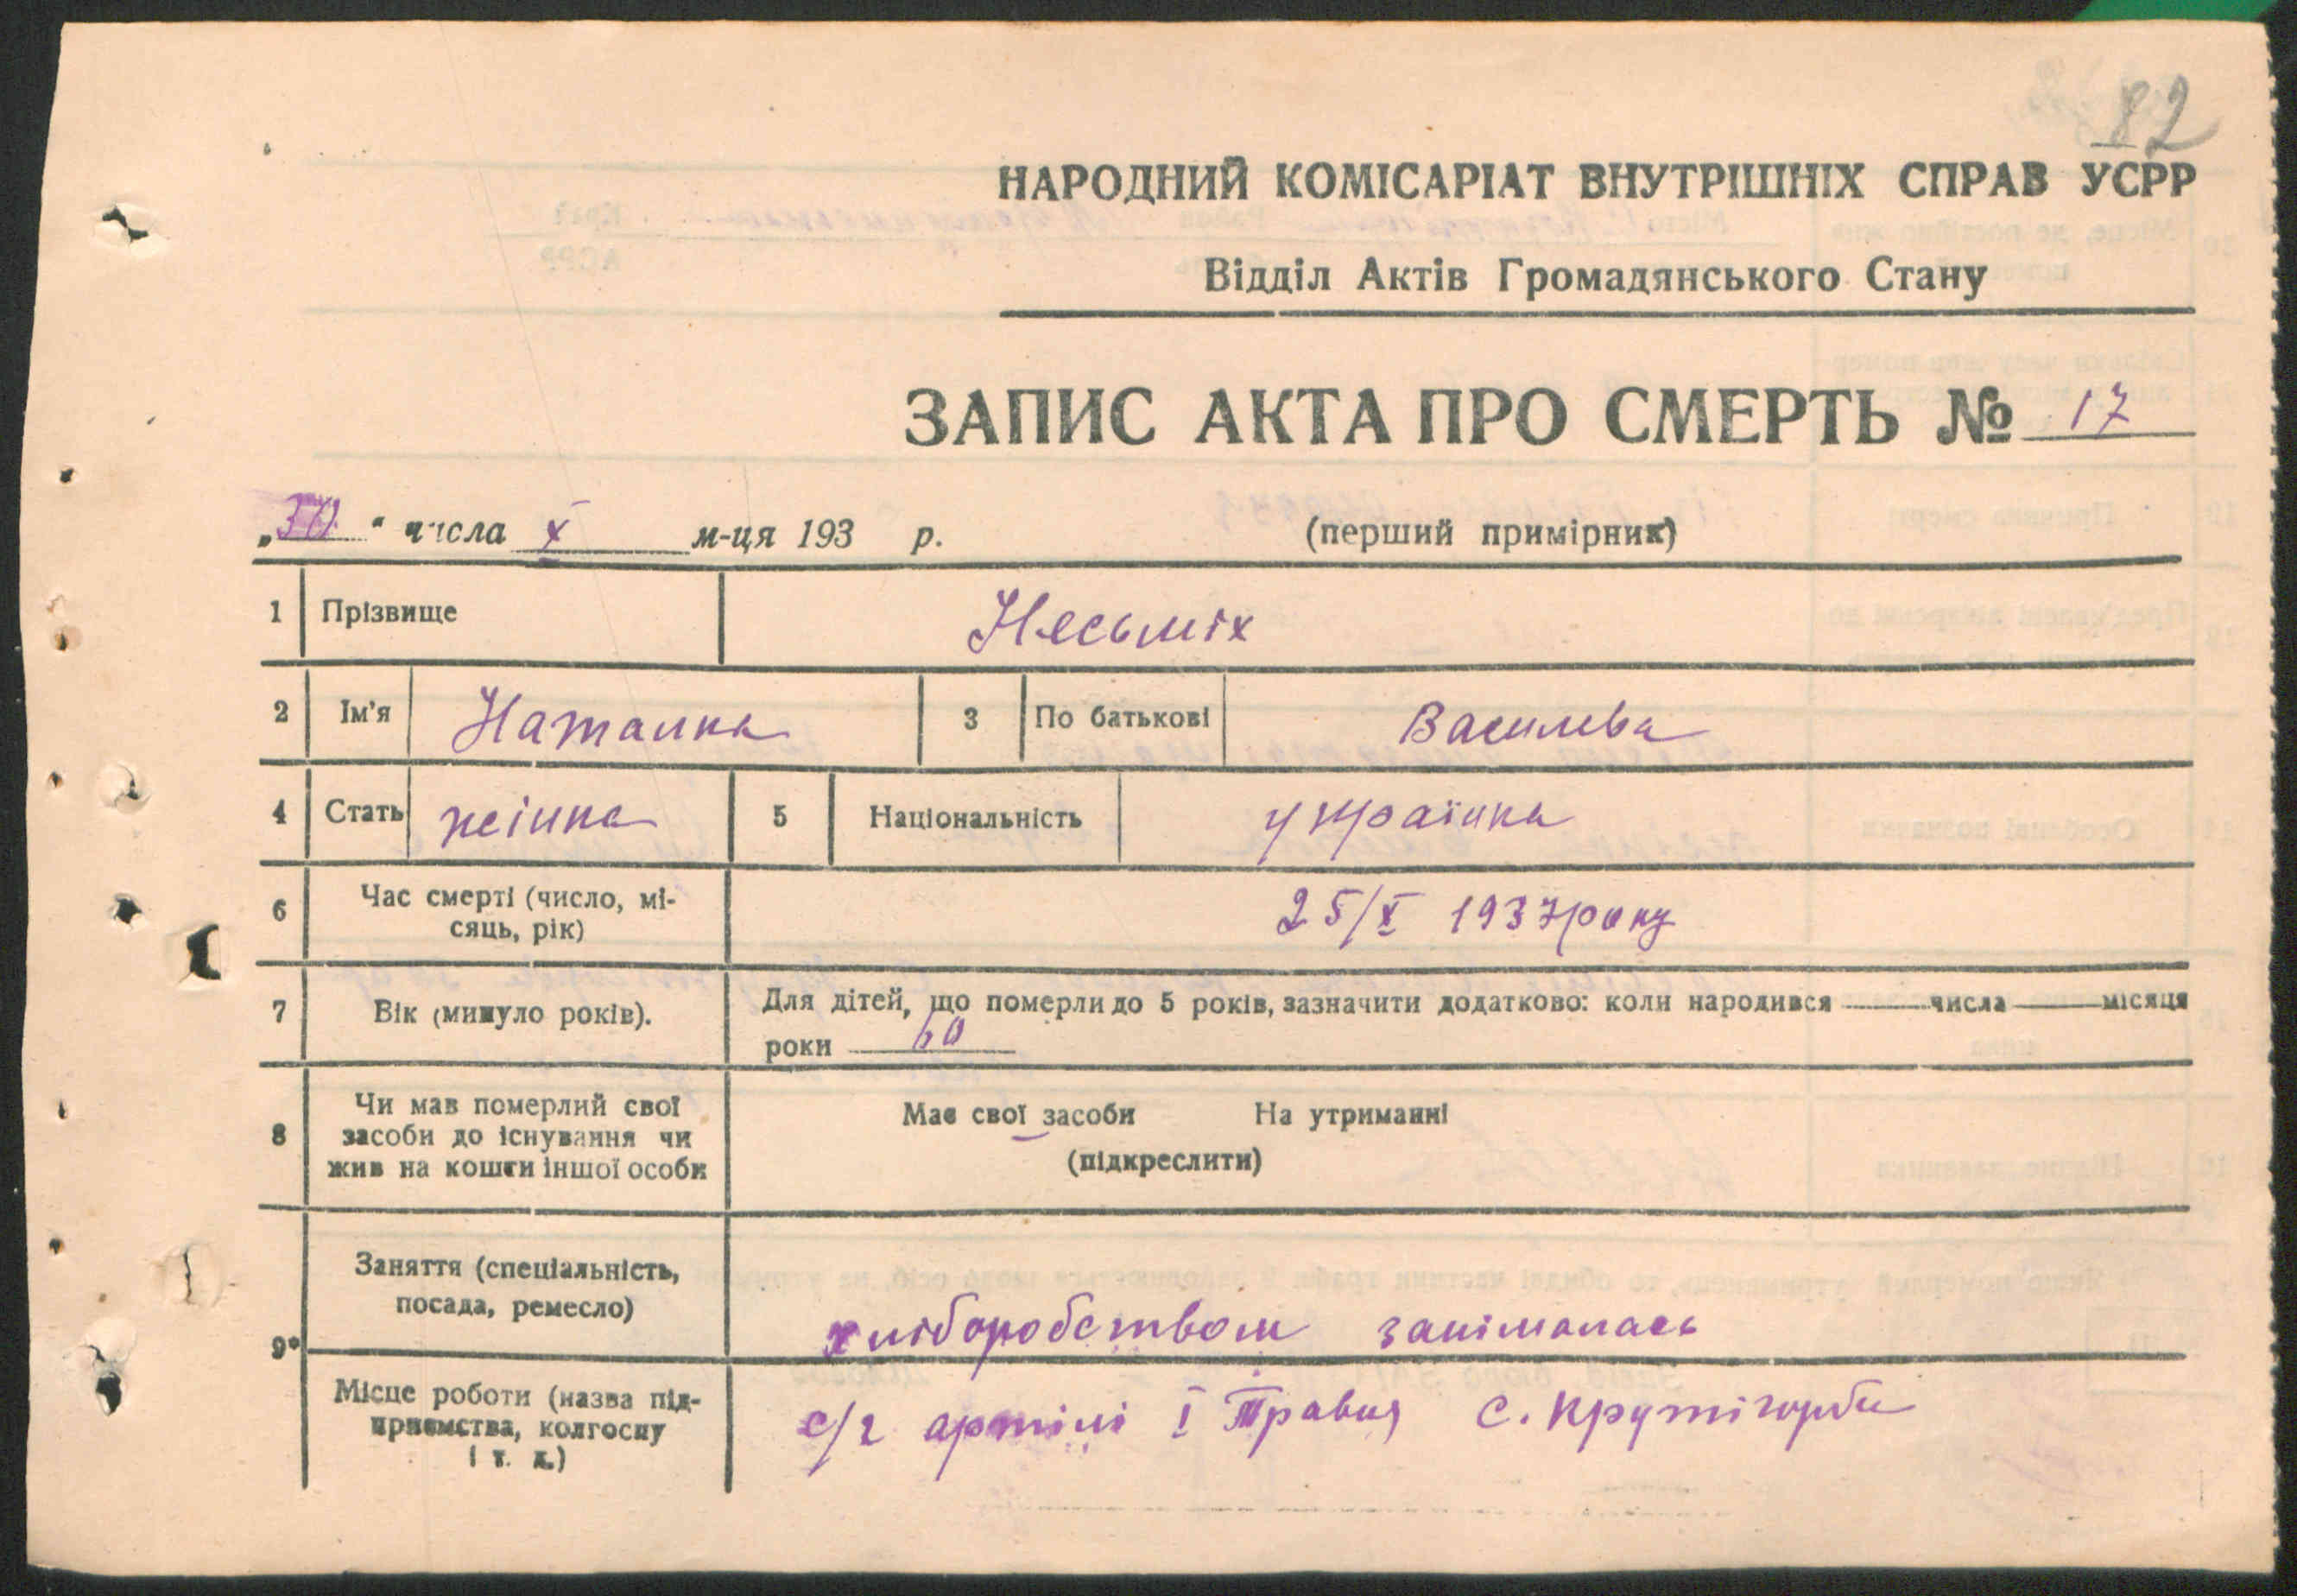 82
НАРОДНИЙ КОМІСАРІАТ ВНУТРІШНІХ СПРАВ УСРР
Відділ Актів Громадянського Стану
ЗАПИС АКТА ПРО СМЕРТЬ № 17
„30“ числа X м-ця 193 р. (перший примірник)
1 Прізвище Несьміх
2 Ім'я Наталка 3 По батькові Василева
4 Стать жінка 5 Національність українка
6 Час смерті (число, мі-
сяць, рік) 25/X 1937 року
7 Вік (минуло років). Для дітей, що померли до 5 років, зазначити додатково: коли народився числа місяця
роки 60
8 Чи мав померлий свої
засоби до існування чи
жив на кошти іншої особи
Має свої засоби На утриманні
(підкреслити)
9* Заняття (спеціальність,
посада, ремесло) хліборобством занімалась
Місце роботи (назва під-
приємства, колгоспу
і т. д.) с/г артілі І Травня с. Крутігорби